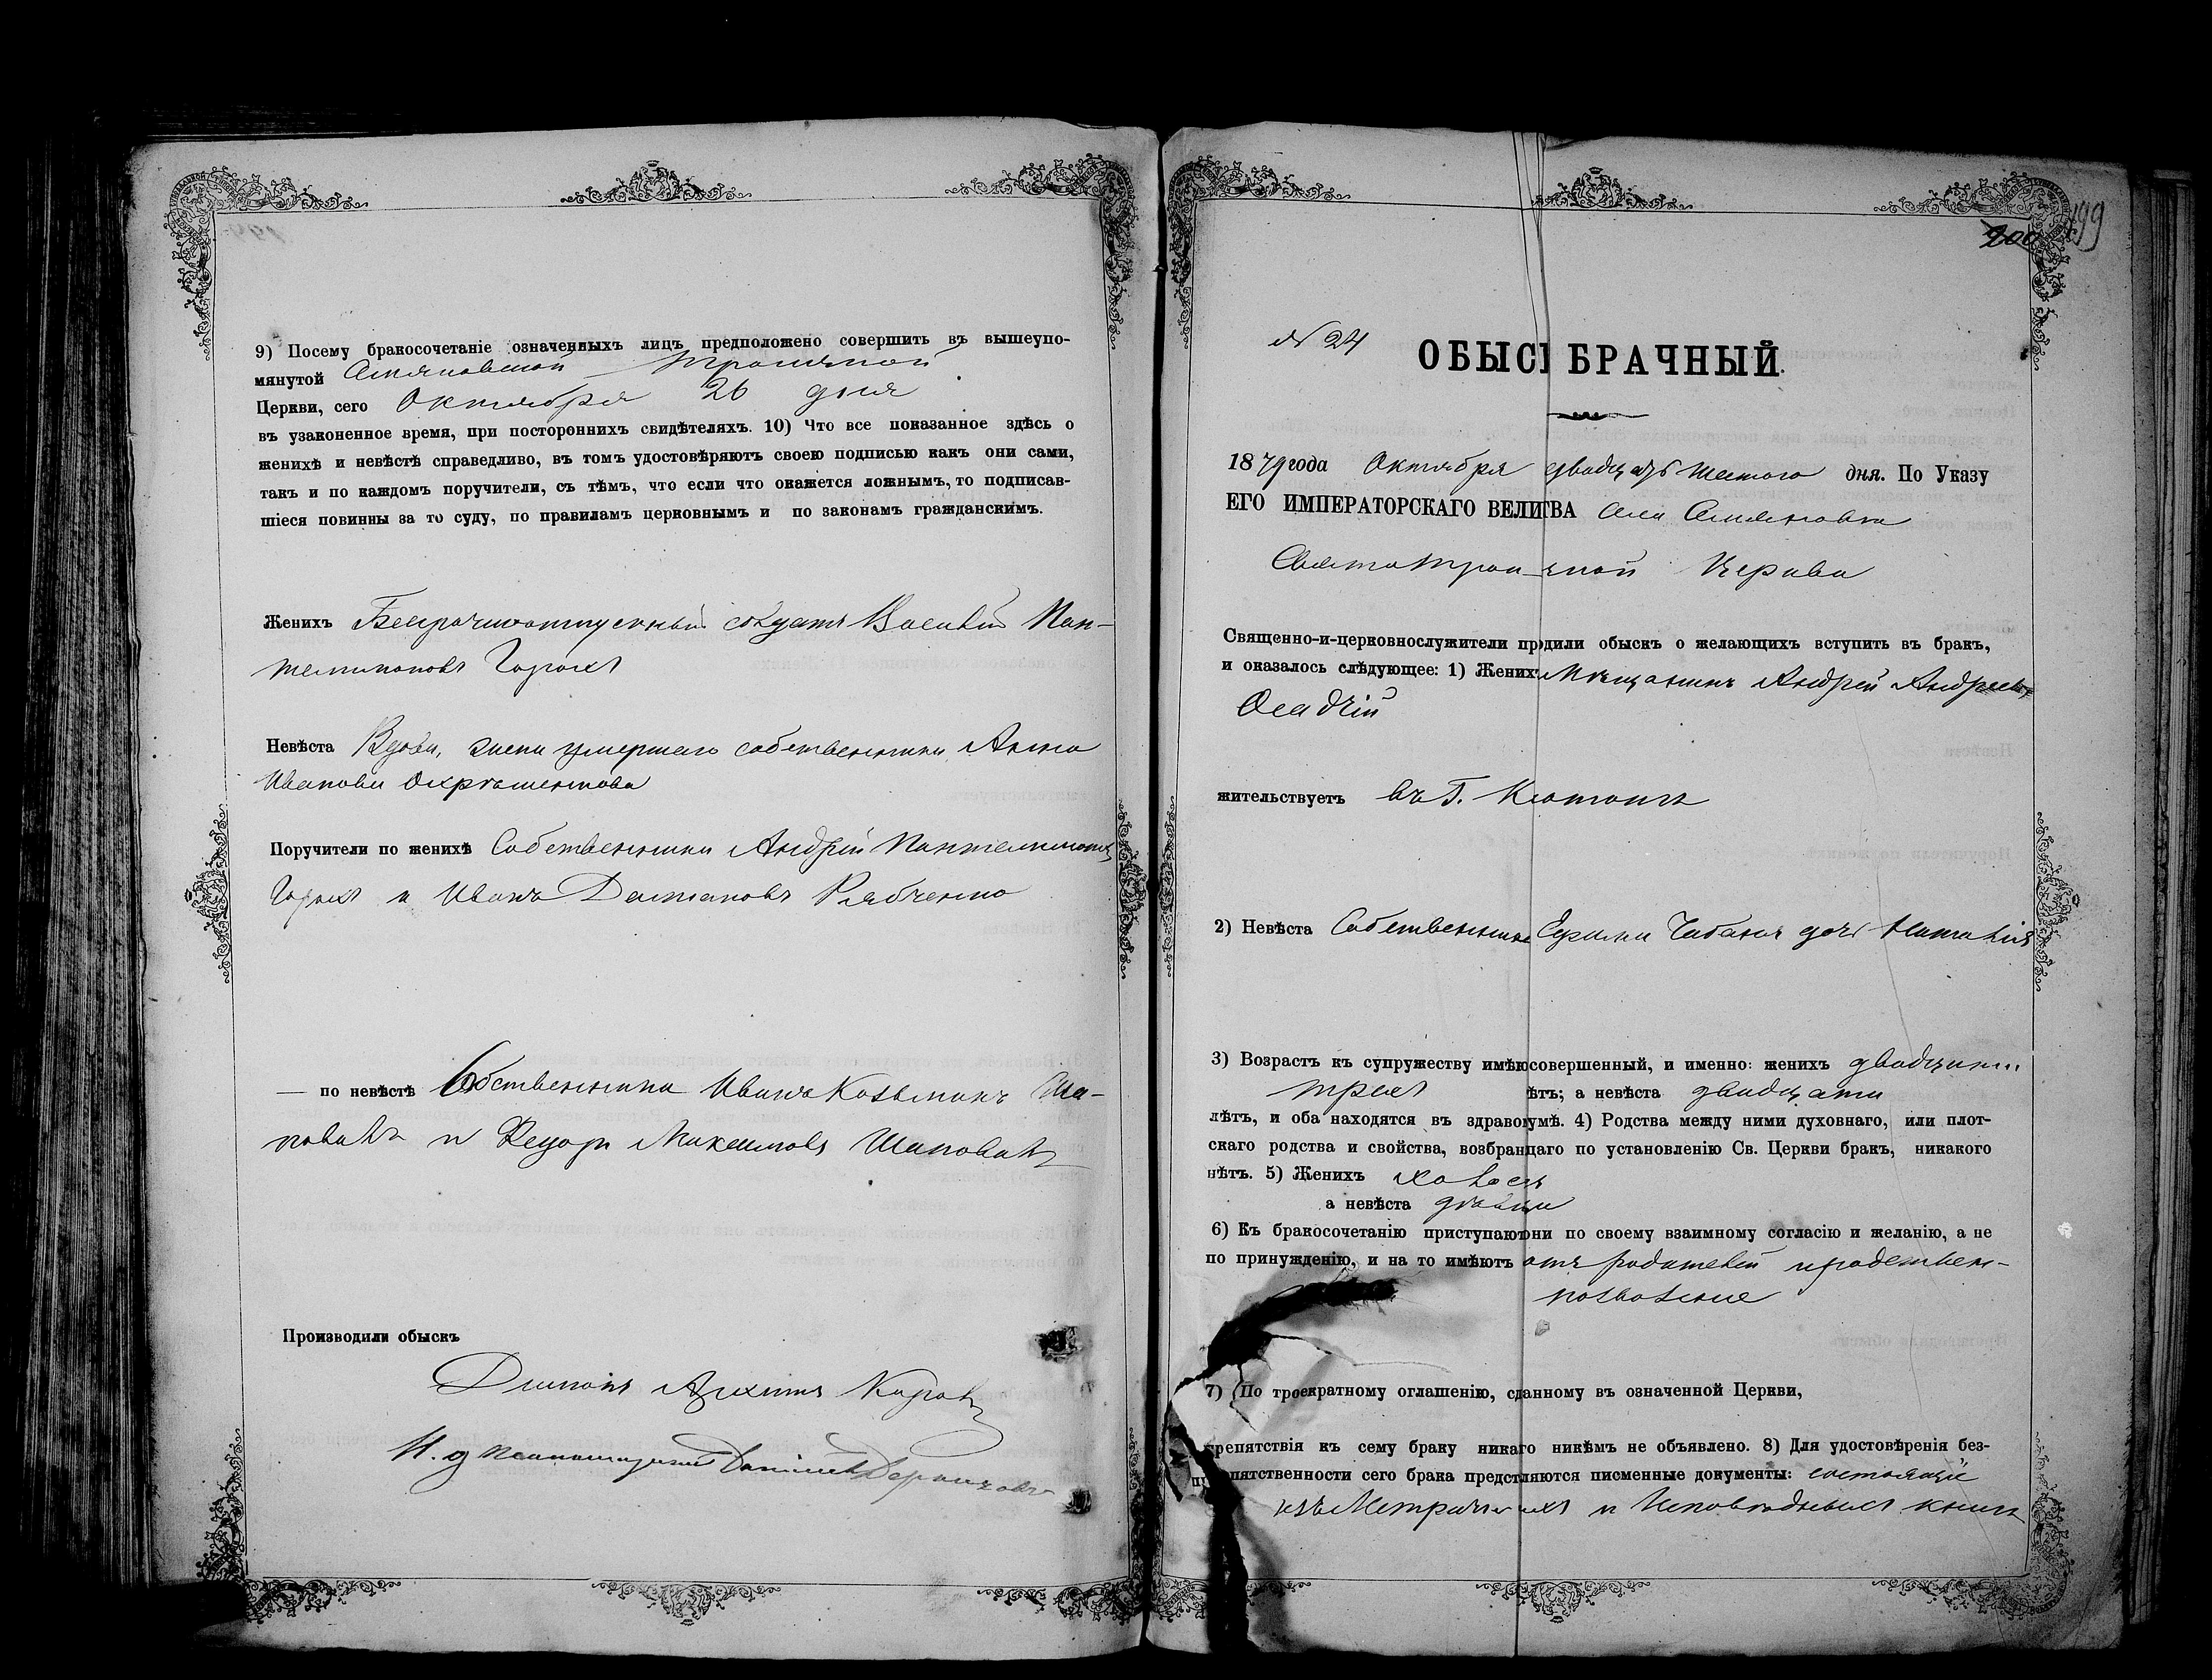 9) Посему бракосочетаніе означенныхъ лицъ предположено совершить въ вышеупо-
мянутой
Церкви, сего Октября 26 дня
въ узаконенное время, при постороннихъ свидѣтеляхъ. 10) Что все показанное здѣсь о
женихѣ и невѣстѣ справедливо, въ томъ удостовѣряютъ своею подписью какъ они сами,
такъ и по каждомъ поручители, съ тѣмъ, что если что окажется ложнымъ, то подписав-
шіеся повинны за то суду, по правиламъ церковнымъ и по законамъ гражданскимъ.
Женихъ Безсрочноотпускный солдатъ Василій Пан-
телимоновъ Горохъ
Невѣста Вдова, жена умершаго собственника Анна
Иванова
Поручители по женихѣ Собственники Андрей Пантелимоновъ
Горохъ и Иванъ Рябченко
— по невѣстѣ Собственники Иванъ Козьминъ Ша-
повалъ и Федоръ Максимовъ Шаповалъ
Производили обыскъ
И. д.
199
200
№ 24
ОБЫС БРАЧНЫЙ.
1879 года Октября двадцать шестого дня. По Указу
ЕГО ИМПЕРАТОРСКАГО ВЕЛИ ТВА села
Свято Троичной Церкви
Священно-и-церковнослужители пр дили обыскъ о желающихъ вступить въ бракъ,
и оказалось слѣдующее: 1) Жених Мѣщанинъ Андрей Андреевъ
Осадчій
жительствуетъ въ Г.
2) Невѣста Собственника Чабана дочь Наталія
3) Возрастъ къ супружеству имѣю совершенный, и именно: женихъ двадцати
трехъ ѣтъ; а невѣста двадцати
лѣтъ, и оба находятся въ здраво умѣ. 4) Родства между ними духовнаго, или плот-
скаго родства и свойства, возбран щаго по установленію Св. Церкви бракъ, никакого
нѣтъ. 5) Женихъ холостъ
а невѣста дѣвица
6) Къ бракосочетанію приступаютъ ни по своему взаимному согласію и желанію, а не
по принужденію, и на то имѣютъ отъ родителей
позволеніе
7) По троекратному оглашенію, с данному въ означенной Церкви,
препятствія къ сему браку ника го никѣмъ не объявлено. 8) Для удостовѣренія без-
пр пятственности сего брака предст ляются писменные документы: состоящіе
изъ Метрическихъ и Исповѣдныхъ книгъ